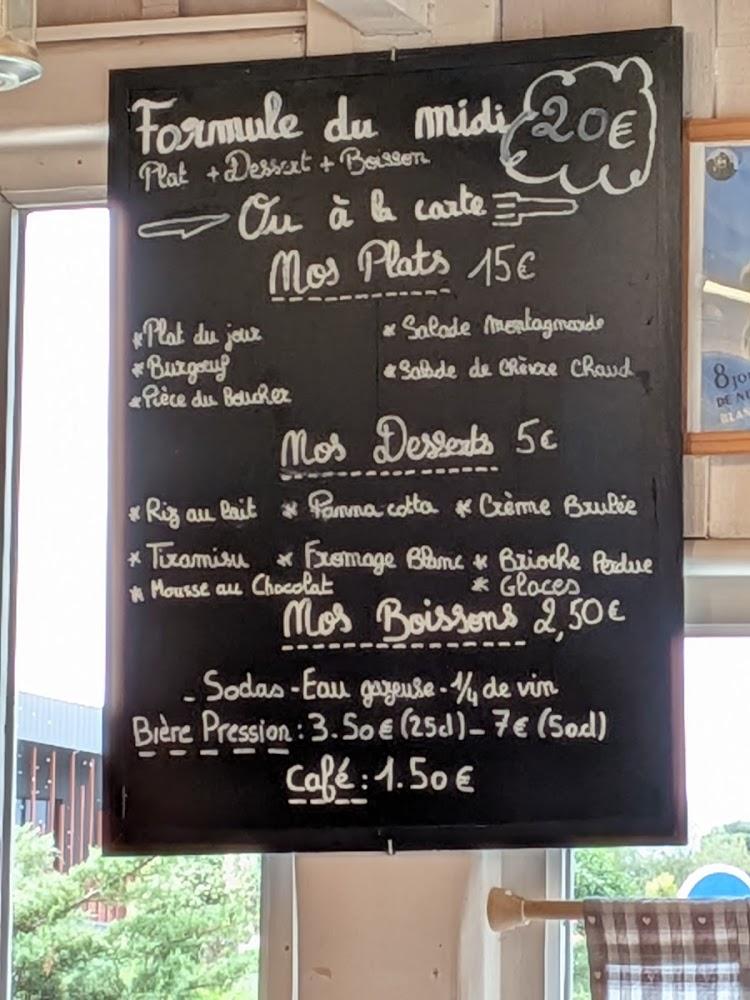 Formule du midi 20€
Plat + Dessert + Boisson
Ou à la carte
Mos Plats 15€
* Plat du jour * Salade Montagnarde
* Burgoeuf * Salade de Chèvre Chaud
* Pièce du Boucher
Mos Desserts 5€
* Riz au lait * Panna cotta * Crème Brulée
* Tiramisu * Fromage Blanc * Brioche Perdue
* Mousse au Chocolat * Glaces
Mos Boissons 2,50€
- Sodas - Eau gazeuse - 1/4 de vin
Bière Pression : 3.50€ (25cl) - 7€ (50cl)
Café : 1.50€
8 JO
DE N
BLA